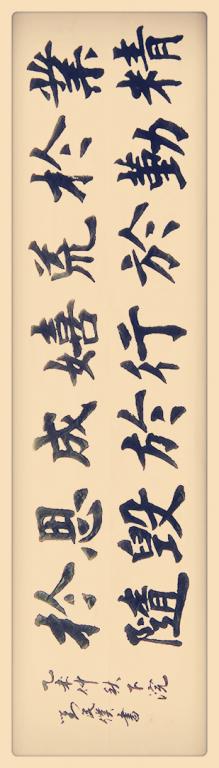 業精
於勤
荒於
嬉行
成於
思毀
於隨
乙未仲秋下浣
書